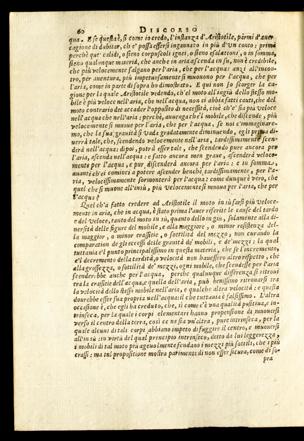 60 DISCORSO
qua. E se questa è, si come io credo, l'instanza d'Aristotile, parmi d'aver
cagione di dubitar, che e' possa essersi ingannato in più d'un conto: prima
perchè que' calidi, o sieno corpuscoli ignei, o sieno esalazioni, o in somma,
sieno qualunque materia, che anche in aria ascenda in su, non è credibile,
che più velocemente salgano per l'aria, che per l'acqua: anzi all'incon-
tro, per avventura, più impetuosamente si muovono per l'acqua, che per
l'aria, come in parte di sopra ho dimostrato. E qui non so scorger la ca-
gione per la quale Aristotile vedendo, che'l moto all'ingiù dello stesso mo-
bile è più veloce nell'aria, che nell'acqua, non ci abbia fatti cauti, che del
moto contrario dee accader l'opposito di necessità, cioè ch'e' sia più veloce
nell'acqua che nell'aria: perchè, avvenga che'l mobile, che discende, più
velocemente si muove per l'aria, che per l'acqua, se noi c'immaginare-
mo, che la sua gravità si vada gradatamente diminuendo, egli prima di-
verrà tale, che, scendendo velocemente nell'aria, tardissimamente scen-
derà nell'acqua: dipoi, potrà esser tale, che scendendo pure ancora per
l'aria, ascenda nell'acqua: e fatto ancora men grave, ascenderà veloce-
mente per l'acqua, e pur discenderà ancora per l'aria: e in somma,
avanti ch'ei cominci a potere ascender benchè, tardissimamente, per l'a-
ria, velocissimamente sormonterà per l'acqua: come dunque è vero, che
quel che si muove all'insù, più velocemente si muova per l'aria, che per
l'acqua?
Quel ch'ha fatto credere ad Aristotile il moto in su farsi più veloce-
mente in aria, che in acqua, è stato prima l'aver riferite le cause del tardo
e del veloce, tanto del moto in sù, quanto dello in giù, solamente alla di-
versità delle figure del mobile, e alla maggiore, o minor resistenza del-
la maggiore, o minor crassizie, o sottilità del mezzo, non curando la
comparazion de gli eccessi delle gravità de' mobili, e de' mezzi: la qual
tuttavia è'l punto principalissimo in questa materia, che se l'incremento,
e'l decremento della tardità, o velocità non havessero altro rispetto, che
alla grossezza, o sottilità de' mezzi, ogni mobile, che scendesse per l'aria
scenderebbe anche per l'acqua, perche qualunque differenza si ritrovi
tra la crassizie dell'acqua, e quella dell'aria, può benissimo ritrovarsi tra
la velocità dello stesso mobile nell'aria, e qualche altra velocità: e questa
dovrebbe esser sua propria nell'acqua: il che tuttavia è falsissimo. L'altra
occasione è, che egli ha creduto, che, si come c'è una qualità positiva, in-
trinseca, per la quale i corpi elementari hanno propensione di muoversi
verso il centro della terra, così ce ne sia un'altra, pure intrinseca, per la
quale alcuni di tali corpi abbiano impeto di fuggire il centro, e muoversi
all'in sù: in virtù del qual principio intrinseco, detto da lui leggerezza,
i mobili di tal moto più agevolmente fendano i mezzi più sottili, che i più
crassi: ma tal proposizione mostra parimente di non esser sicura, come di so-
pra